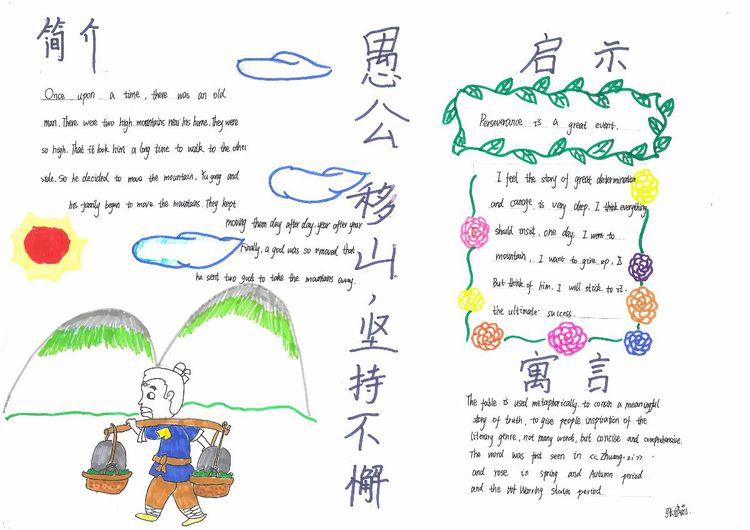 简介
Once upon a time, there was an old
man. There were two high mountains near his home. They were
so high. That it took him a long time to walk to the other
side. So he decided to move the mountain. Yu gong and
his family began to move the mountains. They kept
moving them day after day. year after year
Finally, a god was so moved that
he sent two gods to take the mountains away.
愚公移山，坚持不懈
启示
Perseverance is a great event.
I feel the story of great determination
and is very deep. I think everything
should insist, one day. I went to
mountain, I want to give up, It
But think of him. I will stick to it.
the ultimate success.
寓言
The fable is used metaphorically to contain a meaningful
story of truth, to give people inspiration of the
literary genre, not many words, but concise and comprehensive.
The word was first seen in <<Zhuang-zi>>.
and rose in spring and Autumn period
and the Warring states period.